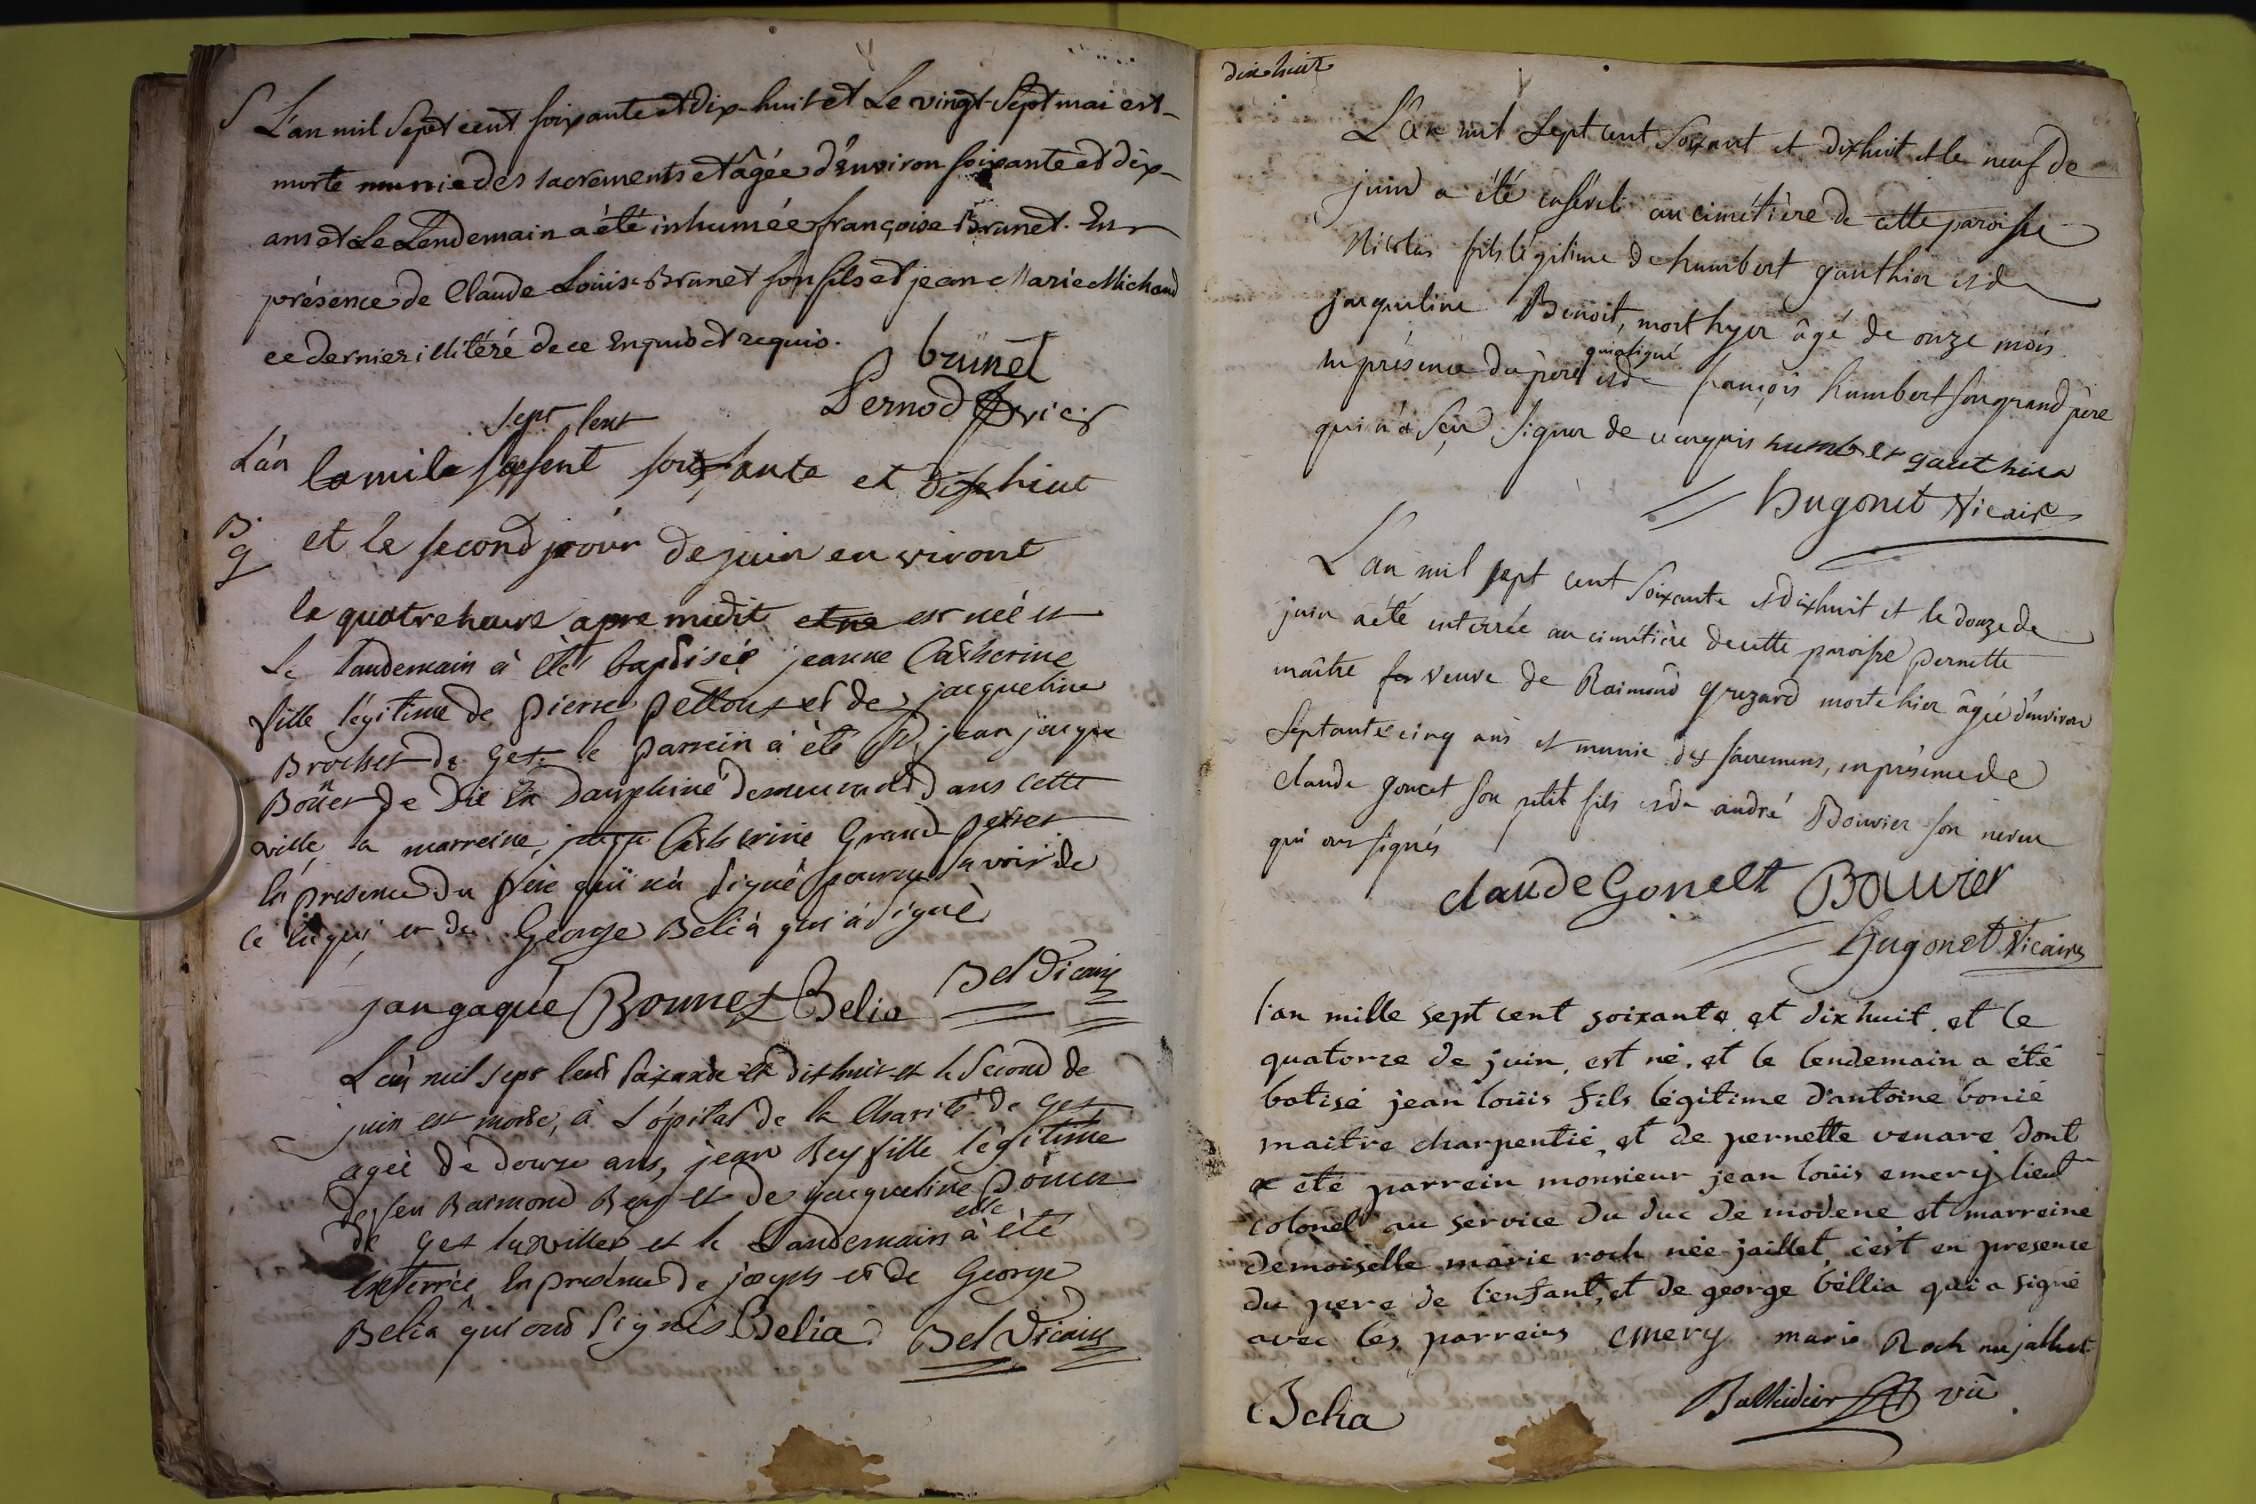 S L'an mil sept cent soixante et dix-huit et Le vingt-sept mai est
morte munie des sacrements et âgée d'Environ soixante et dix
ans et Le Lendemain a été inhumée françoise Brunet. En
présence de Claude Loüis Brunet son fils et jean Marie Michaud
ce dernier illitéré de ce Enquis et requis.
brunet
Pernod vic
sept sent
L'an la mile sesent soixsante et dixhiut
B
g et le second jour de juin en viront
le quatre heure apre midit et ne est née et
le landemain à été baptisée jeanne Catherine
fille légitime de pierre pelloux et de jacqueline
Brochet de Gex. le parrein à été Sr jean jacque
Bonet de Die En Dauphiné demeurant dans cette
ville, la marreine, Catherine Grand perret
En presence du Père qui n'à signé pour ne savoir de
ce Enquis, et de George Belià qui à signé
jan gaque Bounet Belia Bel Vicaire
L'an mil sept cent soixante et dixhuit et le second de
juin est morte, à L'ôpital de la Charité de Gex
agée de douze ans, jean Rey fille légitime
de feu Raimond Rey et de jacqueline
de Gex la ville et le Landemain à été
enterrée En presence de joseph et de George
Belia qui ont signés Belia Bel Vicaire
dix huit
L'an mil sept cent soixant et dixhuit et le neuf de
juin a été enséveli au cimétière de cette paroisse
Nicolas fils légitime de humbert gauthier et de
jacqueline Benoit, mort hyer âgé de onze mois
qui a signé
en présence du père et de françois humbert son grand père
qui n'a sçu signer de ce enquis humber gauthier
Hugonet Vicaire
L'an mil sept cent soixante et dixhuit et le douze de
juin a été enterrée au cimétière de cette paroisse pernette
maître veuve de Raimond gruzard morte hier âgée d'environ
septante cinq ans et munie des sacremens, en présence de
claude goncet son petit fils et de andré Bouvier son neveu
qui ont signés
claude Goncet Bouvier
Hugonet Vicaire
l'an mille sept cent soixante et dix huit et le
quatorze de juin, est né, et le lendemain a été
batisé jean loüis fils légitime d'antoine bonié
maitre charpentié, et de pernette venare dont
a été parrein monsieur jean loüis emery lieut
colonel au service du duc de modene, et marreine
demoiselle marie roch née jaillet, c'est en presence
du pere de l'enfant, et de george béllia qui a signé
avec les parreins emery marie Roch née jalliet
Belia vic